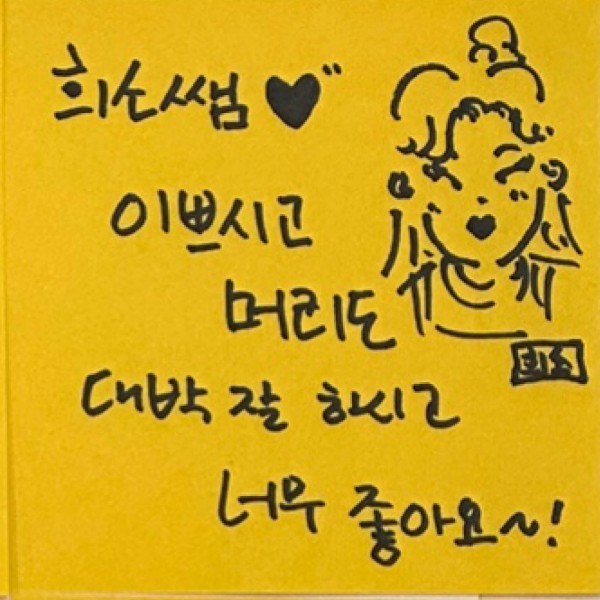 희소쌤♥
이쁘시고
머리도
대박 잘 하시고
너무 좋아요~!
희소